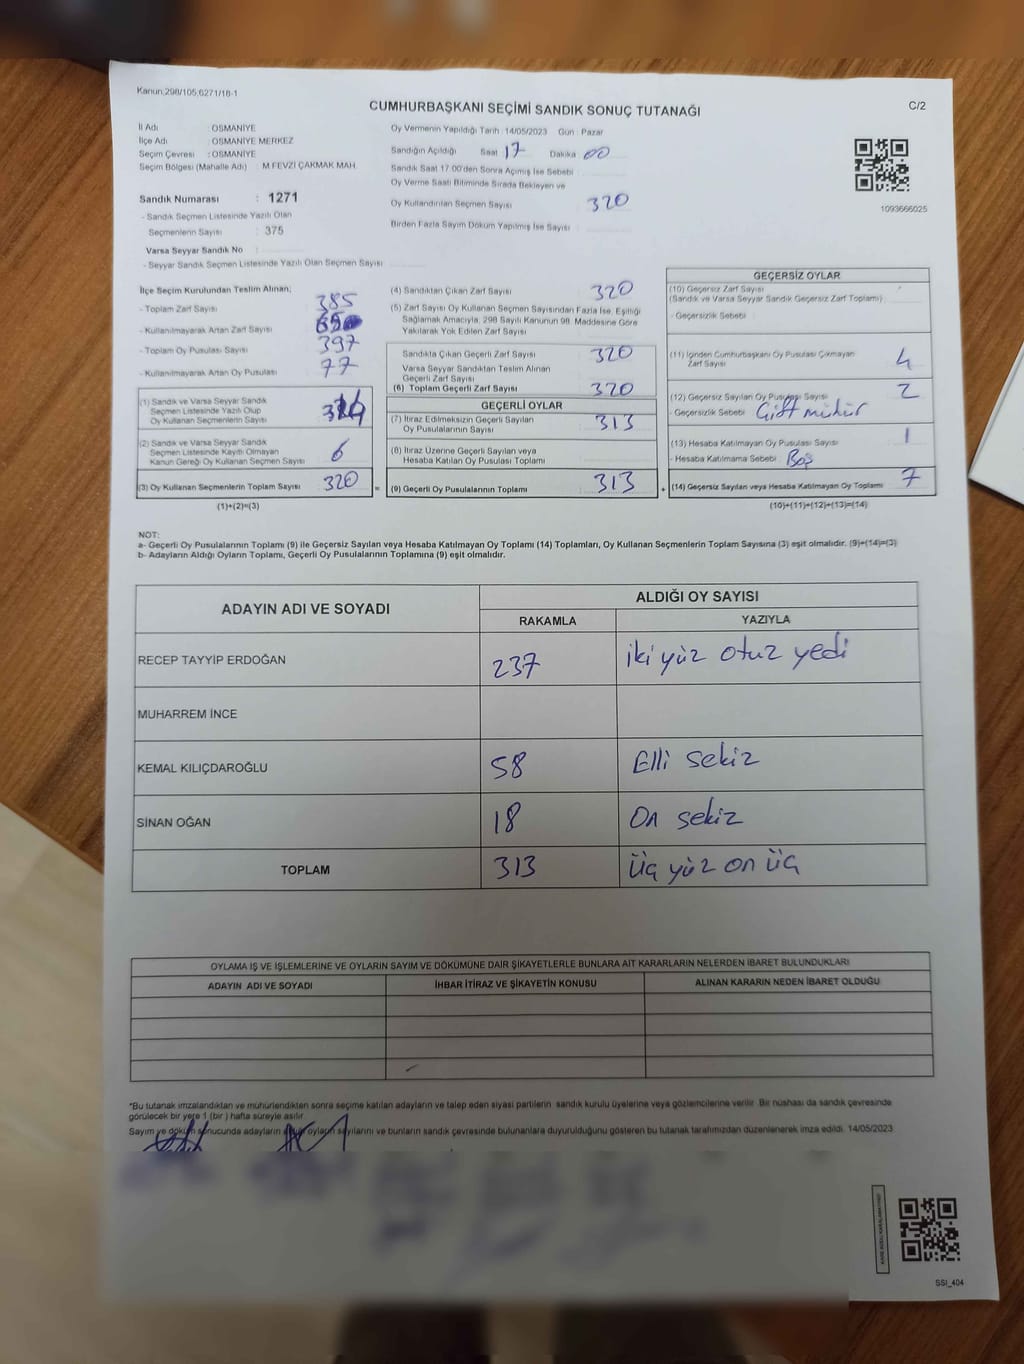 Kanun,298/105,6271/18-1
CUMHURBAŞKANI SEÇİMİ SANDIK SONUÇ TUTANAĞI
C/2
İl Adı : OSMANİYE
İlçe Adı : OSMANİYE MERKEZ
Seçim Çevresi : OSMANİYE
Seçim Bölgesi (Mahalle Adı) : M.FEVZİ ÇAKMAK MAH.
Sandık Numarası : 1271
- Sandık Seçmen Listesinde Yazılı Olan
Seçmenlerin Sayısı : 375
Varsa Seyyar Sandık No :
- Seyyar Sandık Seçmen Listesinde Yazılı Olan Seçmen Sayısı
Oy Vermenin Yapıldığı Tarih : 14/05/2023 Gün : Pazar
Sandığın Açıldığı Saat 17 Dakika 00
Sandık Saat 17:00'den Sonra Açımış İse Sebebi
Oy Verme Saati Bitiminde Sırada Bekleyen ve
Oy Kullandırılan Seçmen Sayısı : 320
Birden Fazla Sayım Döküm Yapılmış İse Sayısı :
1093666025
İlçe Seçim Kurulundan Teslim Alınan;
- Toplam Zarf Sayısı 385
- Kullanılmayarak Artan Zarf Sayısı
- Toplam Oy Pusulası Sayısı 397
- Kullanılmayarak Artan Oy Pusulası 77
(1) Sandık ve Varsa Seyyar Sandık
Seçmen Listesinde Yazılı Olup
Oy Kullanan Seçmenlerin Sayısı
(2) Sandık ve Varsa Seyyar Sandık
Seçmen Listesinde Kaydı Olmayan
Kanun Gereği Oy Kullanan Seçmen Sayısı 6
(3) Oy Kullanan Seçmenlerin Toplam Sayısı 320
(1)+(2)=(3)
(4) Sandıktan Çıkan Zarf Sayısı 320
(5) Zarf Sayısı Oy Kullanan Seçmen Sayısından Fazla İse, Eşitliği
Sağlamak Amacıyla, 298 Sayılı Kanunun 98. Maddesine Göre
Yakılarak Yok Edilen Zarf Sayısı
Sandıkta Çıkan Geçerli Zarf Sayısı 320
Varsa Seyyar Sandıktan Teslim Alınan
Geçerli Zarf Sayısı
(6) Toplam Geçerli Zarf Sayısı 320
GEÇERLİ OYLAR
(7) İtiraz Edilmeksizin Geçerli Sayılan
Oy Pusulalarının Sayısı 313
(8) İtiraz Üzerine Geçerli Sayılan veya
Hesaba Katılan Oy Pusulası Toplamı
= (9) Geçerli Oy Pusulalarının Toplamı 313 +
GEÇERSİZ OYLAR
(10) Geçersiz Zarf Sayısı
(Sandık ve Varsa Seyyar Sandık Geçersiz Zarf Toplamı)
- Geçersizlik Sebebi :
(11) İçinden Cumhurbaşkanı Oy Pusulası Çıkmayan
Zarf Sayısı 4
(12) Geçersiz Sayılan Oy Pusulası Sayısı 2
- Geçersizlik Sebebi : Çift mühür
(13) Hesaba Katılmayan Oy Pusulası Sayısı 1
- Hesaba Katılmama Sebebi : Boş
(14) Geçersiz Sayılan veya Hesaba Katılmayan Oy Toplamı 7
(10)+(11)+(12)+(13)=(14)
NOT:
a- Geçerli Oy Pusulalarının Toplamı (9) ile Geçersiz Sayılan veya Hesaba Katılmayan Oy Toplamı (14) Toplamları, Oy Kullanan Seçmenlerin Toplam Sayısına (3) eşit olmalıdır. (9)+(14)=(3)
b- Adayların Aldığı Oyların Toplamı, Geçerli Oy Pusulalarının Toplamına (9) eşit olmalıdır.
ADAYIN ADI VE SOYADI
ALDIĞI OY SAYISI
RAKAMLA YAZIYLA
RECEP TAYYİP ERDOĞAN 237 iki yüz otuz yedi
MUHARREM İNCE
KEMAL KILIÇDAROĞLU 58 Elli sekiz
SİNAN OĞAN 18 On sekiz
TOPLAM 313 Üç yüz on üç
OYLAMA İŞ VE İŞLEMLERİNE VE OYLARIN SAYIM VE DÖKÜMÜNE DAİR ŞİKAYETLERLE BUNLARA AİT KARARLARIN NELERDEN İBARET BULUNDUKLARI
ADAYIN ADI VE SOYADI İHBAR İTİRAZ VE ŞİKAYETİN KONUSU ALINAN KARARIN NEDEN İBARET OLDUĞU
*Bu tutanak imzalandıktan ve mühürlendikten sonra seçime katılan adayların ve talep eden siyasi partilerin sandık kurulu üyelerine veya gözlemcilerine verilir. Bir nüshası da sandık çevresinde
görülecek bir yere 1 (bir) hafta süreyle asılır.
Sayım ve döküm sonucunda adayların oyların sayılarını ve bunların sandık çevresinde bulunanlara duyurulduğunu gösteren bu tutanak tarafımızdan düzenlenerek imza edildi. 14/05/2023
SSİ_404